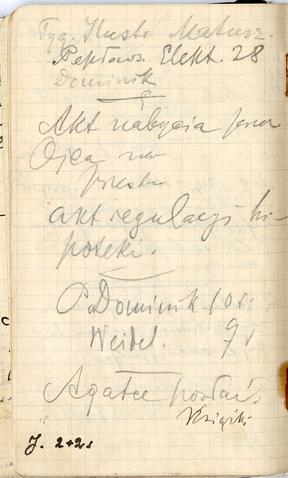 Tyg. Ilustr. Matusz.
Elekt. 28
Dominik
Akt nabycia przez
Ojca
akt regulacji hi-
poteki.
P. Dominik 10 r.
Weibel. 9 r
Agatce posłać
Książki
J. 2+2s